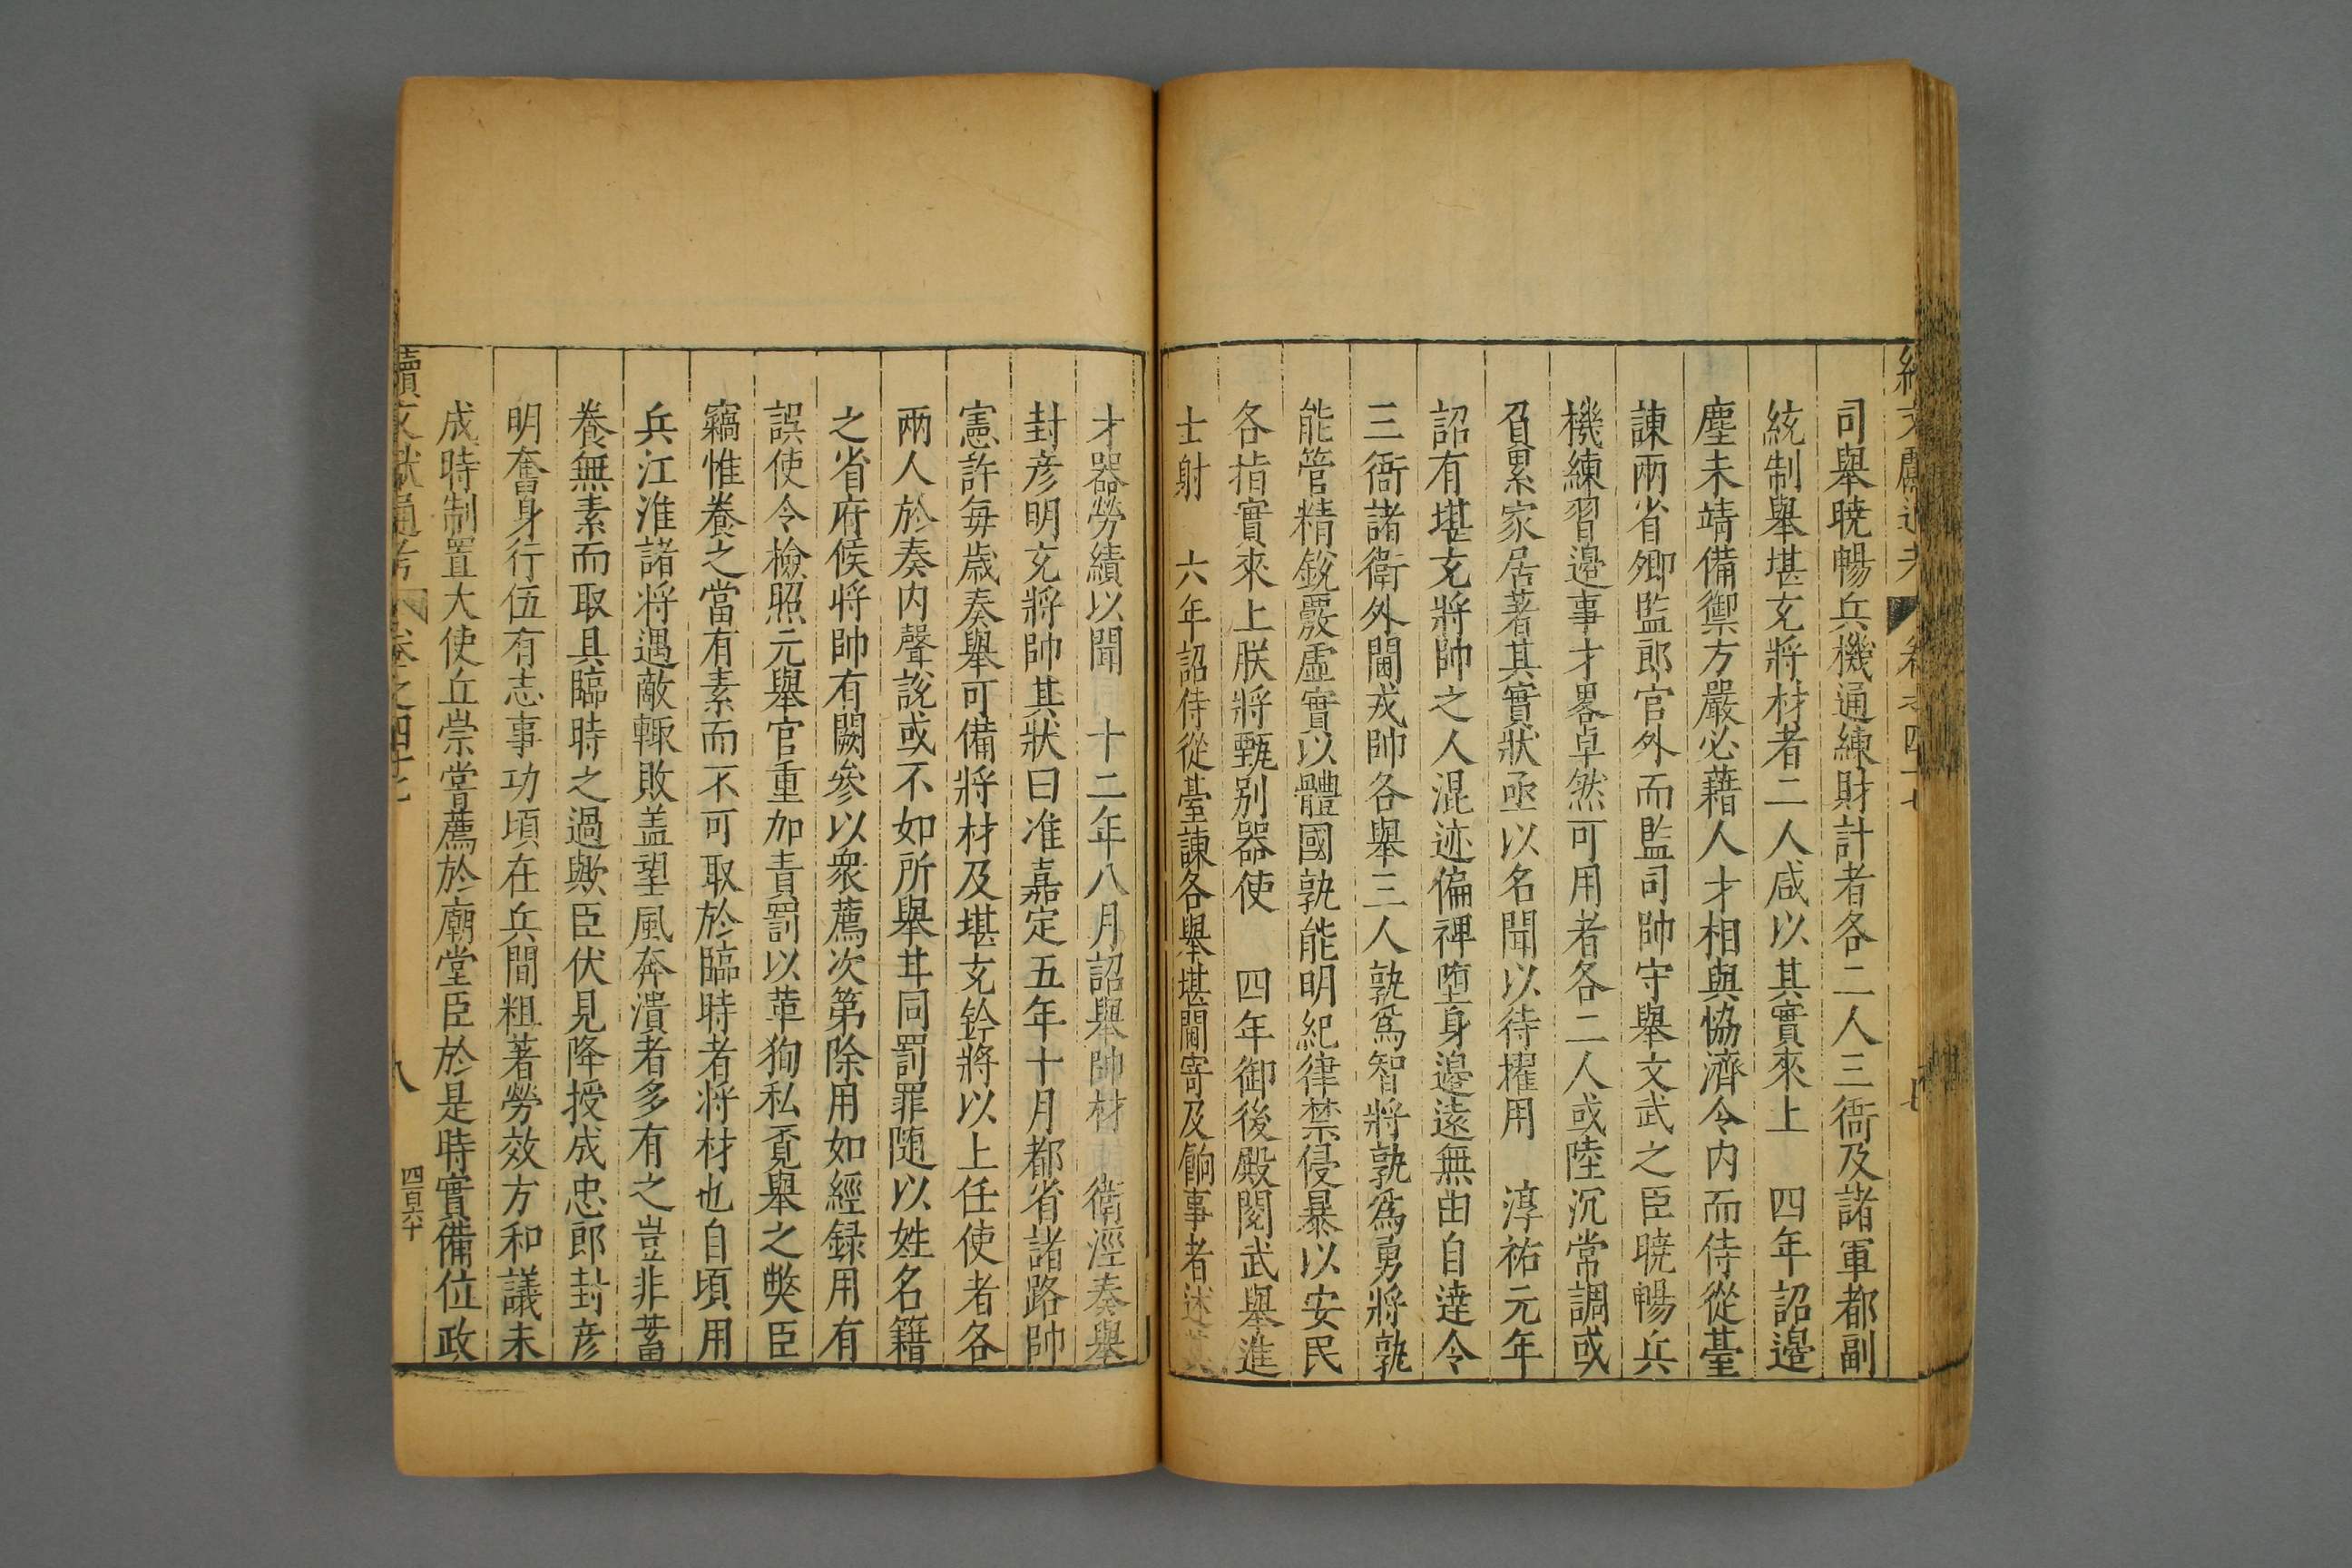 司舉曉暢兵機通練財計者各二人三衙及諸軍都副
統制舉堪充將材者二人咸以其實來上　四年詔邊
塵未靖備禦方嚴必藉人才相與協濟令内而侍從臺
諫兩省卿監郎官外而監司帥守舉文武之臣曉暢兵
機練習邊事才畧卓然可用者各二人或陸沉常調或
負累家居著其實狀亟以名聞以待擢用　淳祐元年
詔有堪充將帥之人混迹偏裨堕身邊遠無由自達令
三衙諸衛外閫戎帥各舉三人孰爲智將孰爲勇將孰
能管精銳覈虛實以體國孰能明紀律禁侵暴以安民
各指實來上朕將甄别器使　四年御後殿閱武舉進
士射　六年詔侍從臺諫各舉堪閫寄及餉事者述其
才器勞績以聞　十二年八月詔舉帥材　衛涇奏舉
封彦明充將帥其狀曰准嘉定五年十月都省諸路帥
憲許每歲奏舉可備將材及堪充鈐將以上任使者各
兩人於奏内聲說或不如所舉甘同罰罪随以姓名籍
之省府候將帥有闕參以衆薦次第除用如經録用有
誤使令檢照元舉官重加責罰以革狥私覔舉之獘臣
竊惟養之當有素而不可取於臨時者将材也自頃用
兵江淮諸將遇敵輙敗盖望風奔潰者多有之豈非蓄
養無素而取具臨時之過歟臣伏見降授成忠郎封彦
明奮身行伍有志事功頃在兵間粗著勞效方和議未
成時制置大使丘崇嘗薦於廟堂臣於是時實備位政
續文獻通考　卷之四十七　八　四百六十